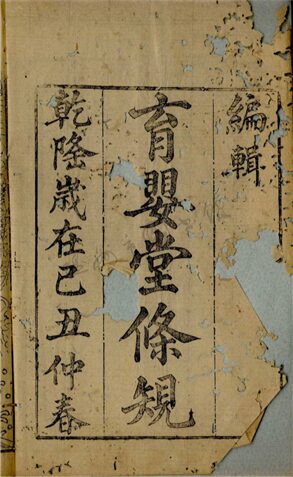 編輯
育嬰堂條規
乾隆歲在己丑仲春